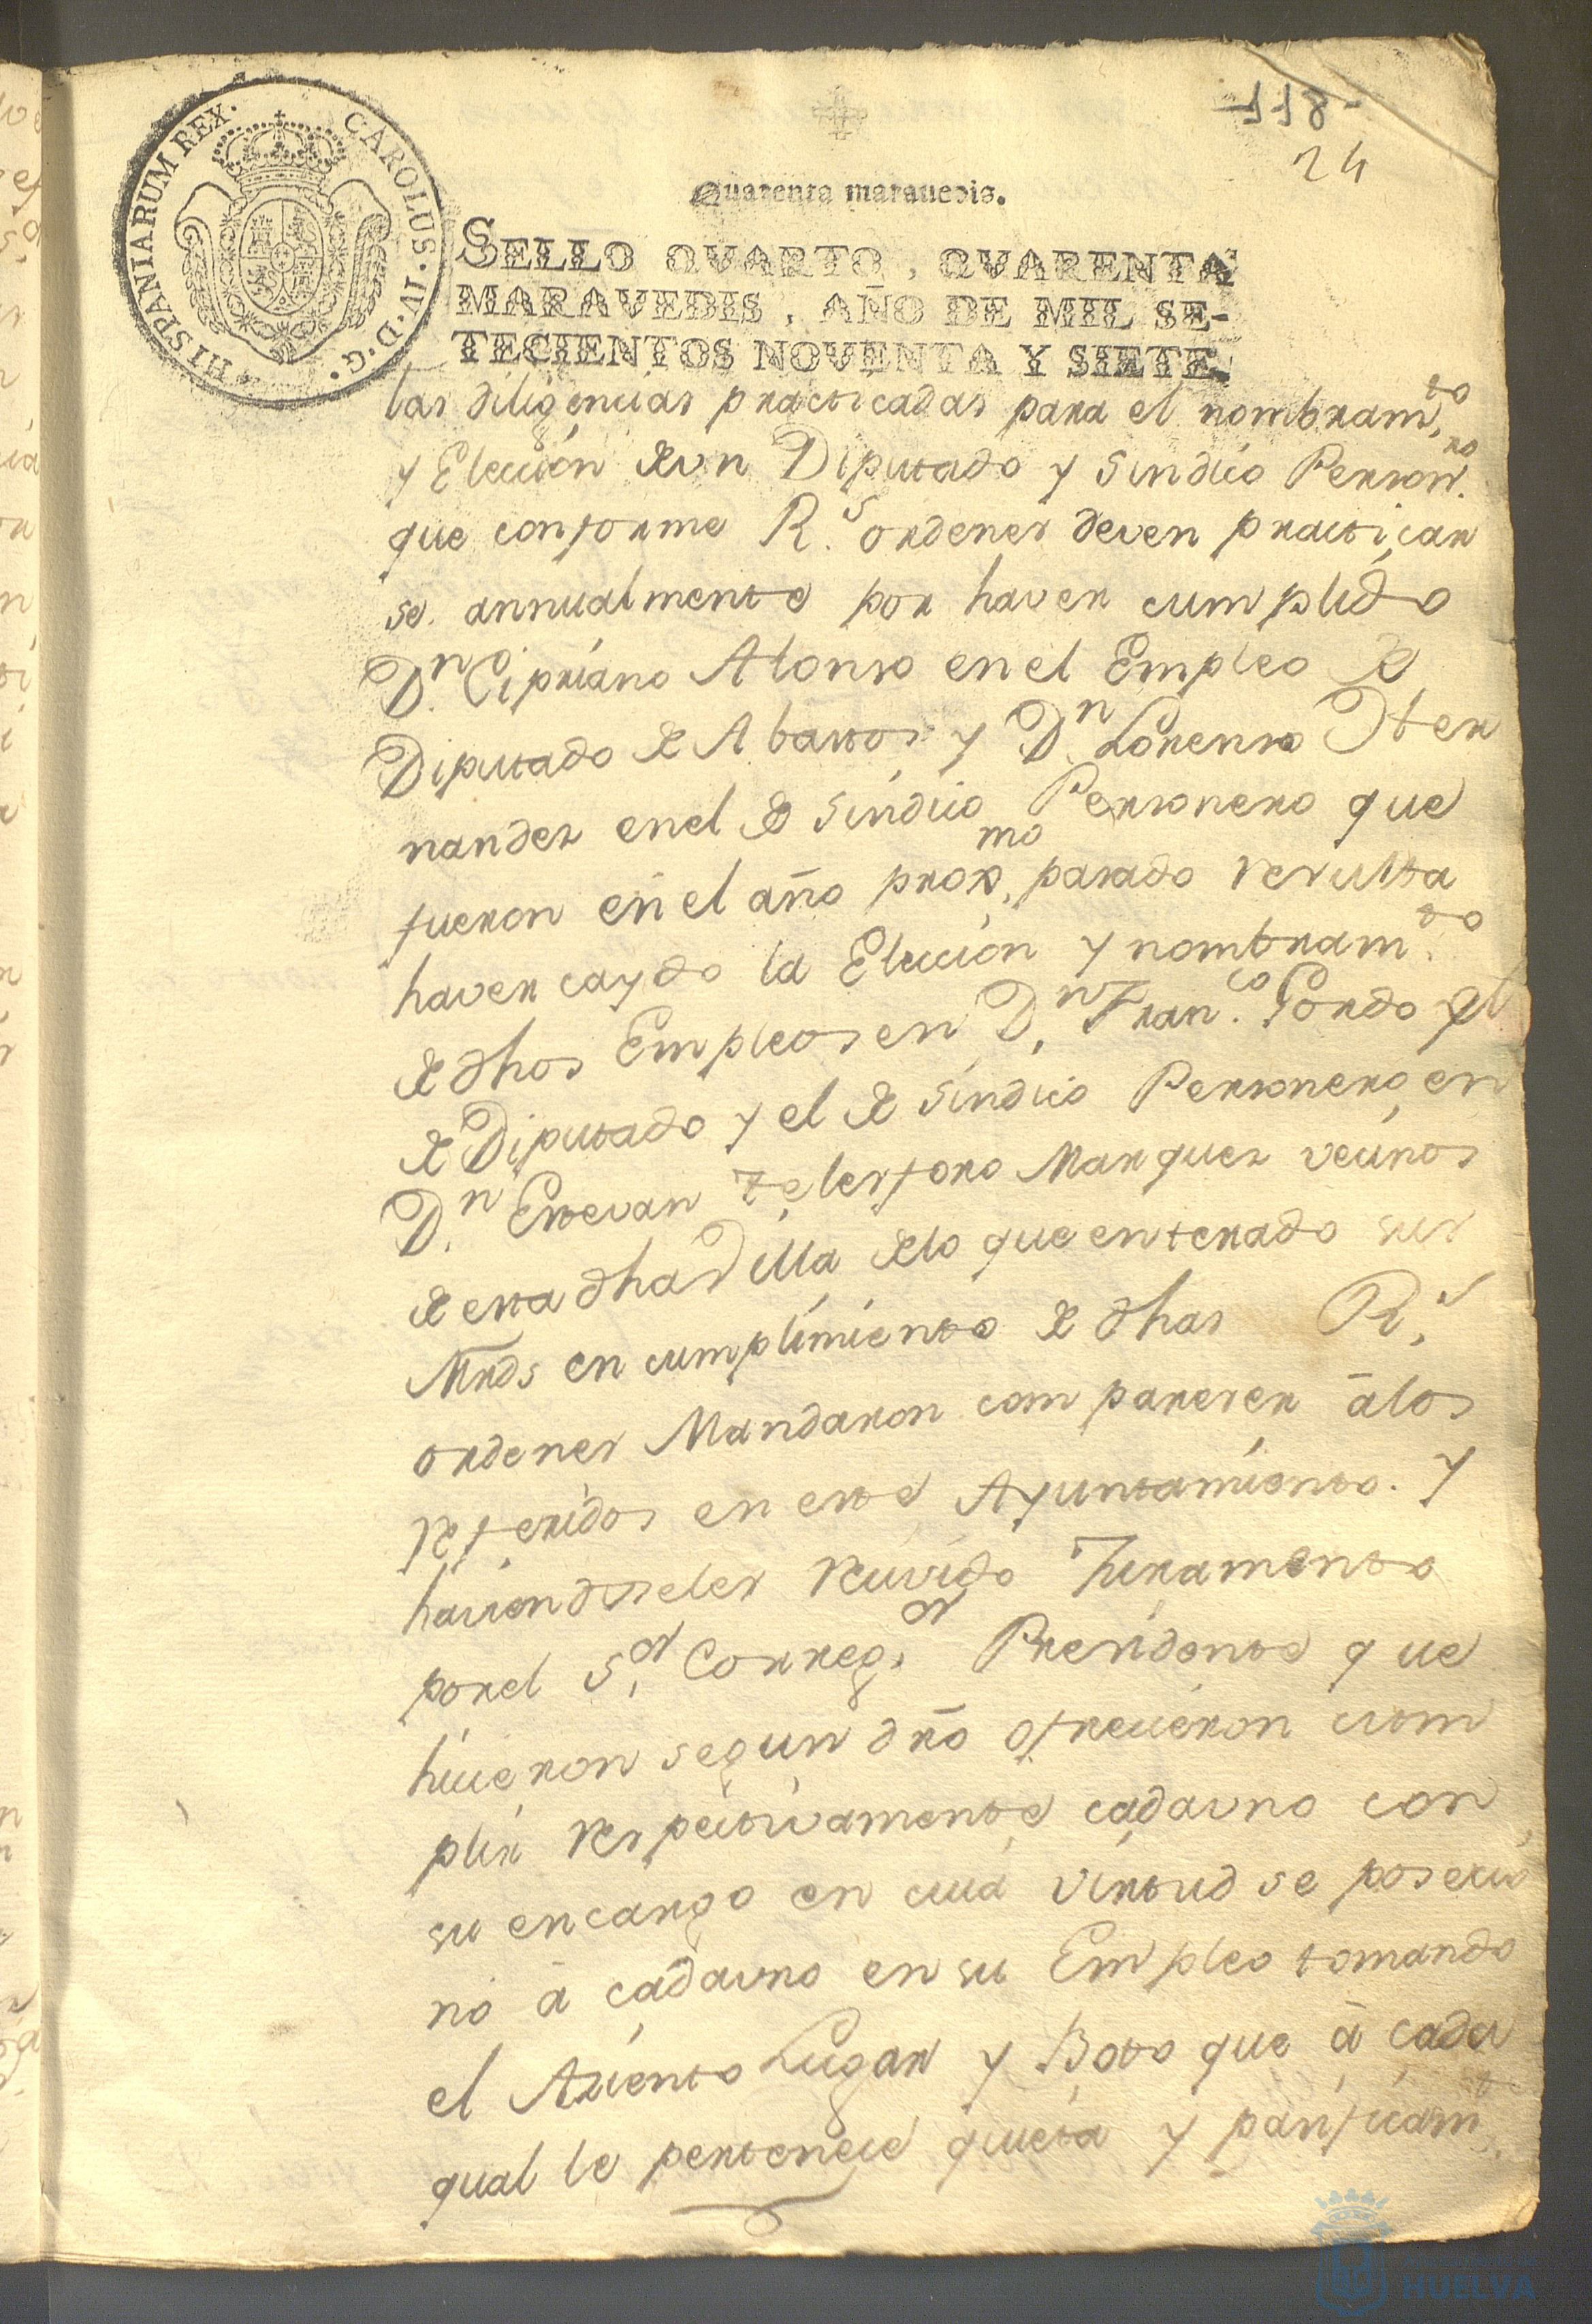 118-
24
HISPANIARUM REX. CAROLUS. IV. D. G.
Quarenta marauedis.
SELLO QVARTO, QVARENTA
MARAVEDIS, AÑO DE MIL SE-
TECIENTOS NOVENTA Y SIETE.
las diligencias practicadas para el nombram.to
y Elección de vn Diputado y Sindico Person.ro
que conforme R.s ordenes deven practicar
se annualmente por haver cumplido
D.n Cipriano Alonso en el Empleo de
Diputado de Abastos y D.n Lorenso Her
nandez en el de Sindico Personero que
fueron en el año prox.mo pasado resulta
haver caydo la Elección y nombram.to
de dhos Empleos en D.n Fran.co Gordo pl
de Diputado y el de Sindico Personero en
D.n Estevan Telesforo Marquez vecinos
de esta dha Villa de lo que enterado sus
Mrds en cumplimiento de dhas R.s
ordenes Mandaron compareser à los
referidos en este Ayuntamiento. Y
haviendoseles recivido Juramento
por el S.or Correg.or Presidente que
hicieron segun dro ofrecieron cum
plir respectivamente cada vno con
su encargo en cuia virtud se posecio
nó à cada vno en su Empleo tomando
el Aziento Lugar y Boto que à cada
qual le pertenece quieta y pasificam.te
HUELVA